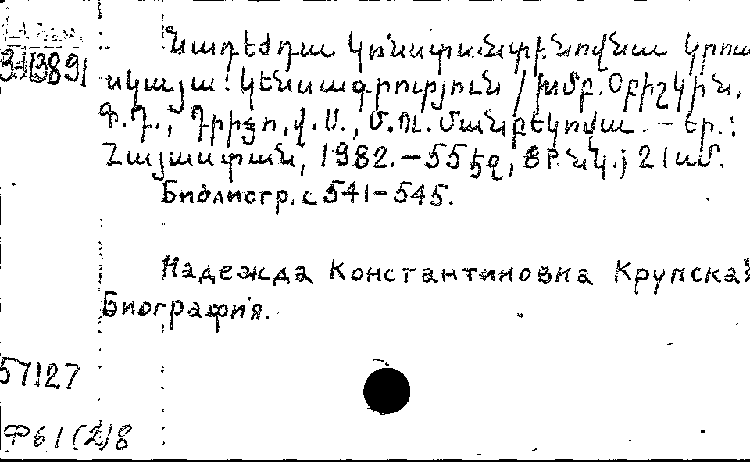 3-13891
Նադեժդա Կոնստանտինովնա Կրուպ
սկայա: Կենսագրություն / խմբ. Օբիչկին,
Գ.Դ., Դրիզո, վ.Ս., Մ.Ու. Մանբեկովա. – Եր.:
Հայաստան, 1982. – 555 էջ, 8 թ. նկ.; 21 սմ.
Библиогр. с 541-545.
Надежда Константиновна Крупская
Биография.
57127
Ф61(2)8